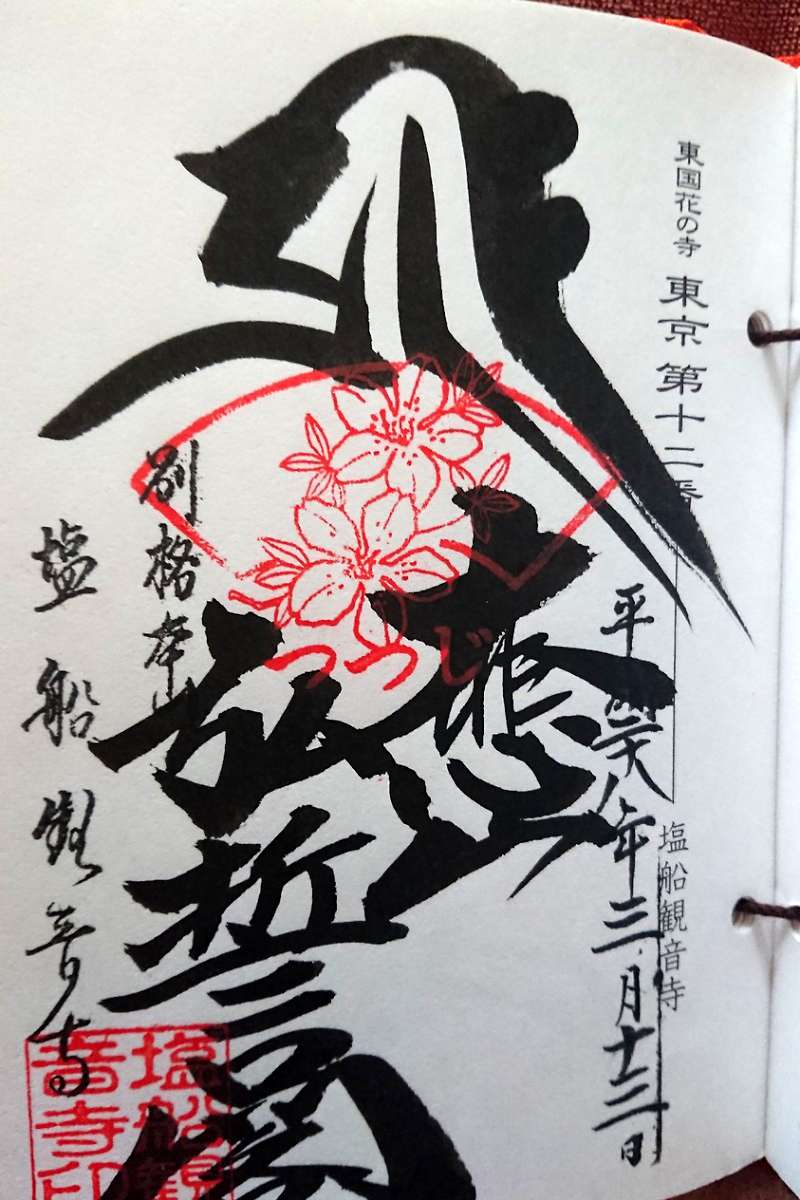 東国花の寺 東京 第十二番
塩船観音寺
平成廿八年三月十三日
大悲
弘誓
つつじ
別格本山
塩船観音寺
塩船観
音寺印